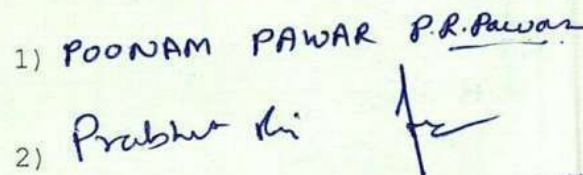 1) POONAM PAWAR P.R.Pawar
2) Prabhu